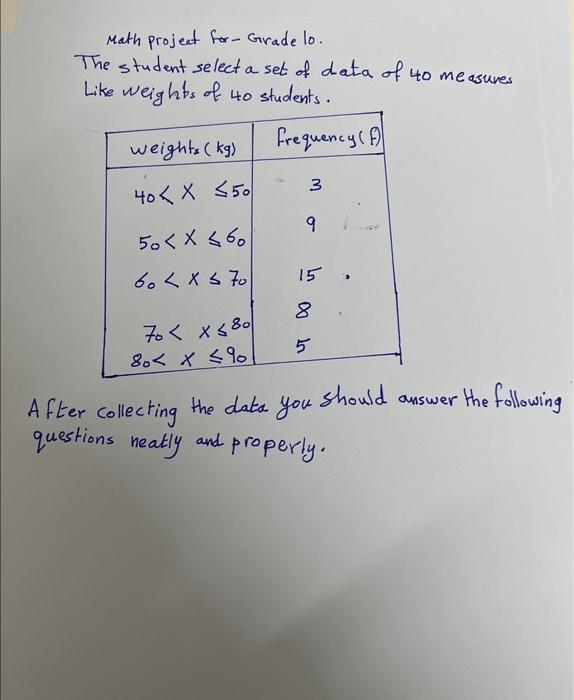 Math project for - Grade 10.
The student select a set of data of 40 measures
Like weights of 40 students.
weights (kg) frequency (f)
40 < X ≤ 50 3
50 < X ≤ 60 9
60 < X ≤ 70 15
70 < X ≤ 80 8
80 < X ≤ 90 5
After collecting the data you should answer the following
questions neatly and properly.